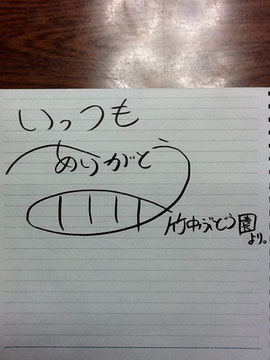 いっつも
ありがとう
竹中ぶどう園
より。